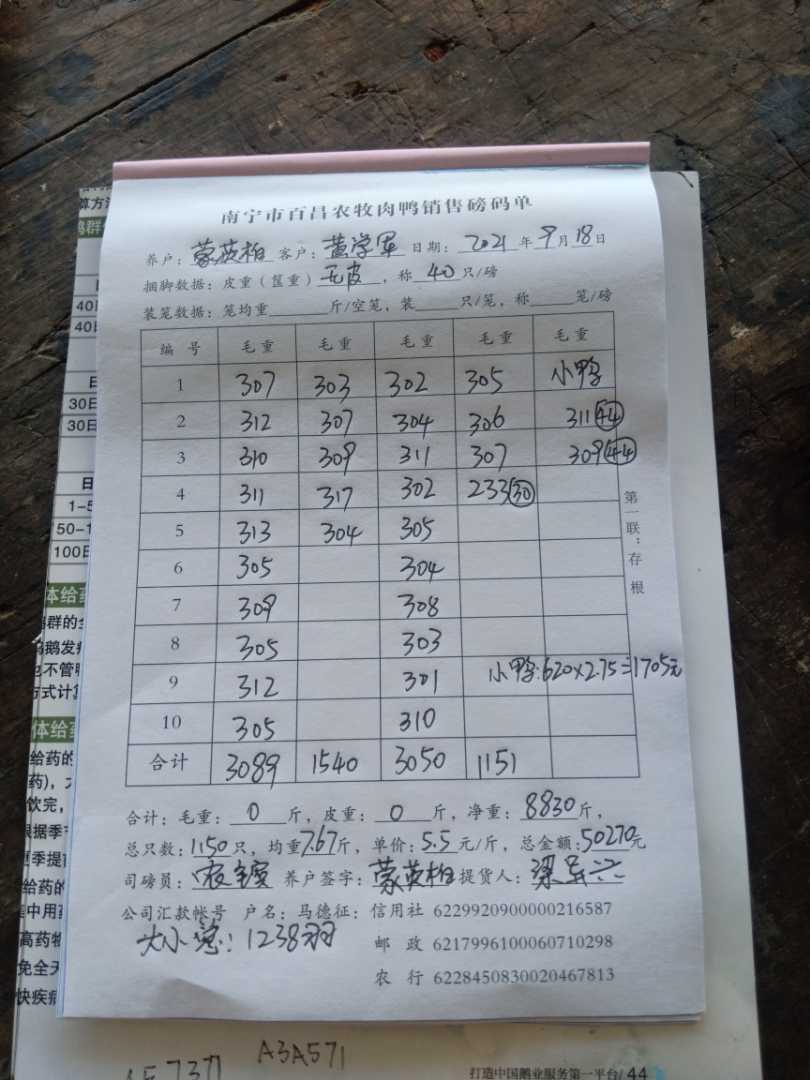 南宁市百昌农牧肉鸭销售磅码单
养户:蒙英柏 客户:黄学军 日期:2021年9月18日
捆脚数据:皮重(筐重)毛皮,称40只/磅
装笼数据:笼均重 斤/空笼,装 只/笼,称 笼/磅
编号 毛重 毛重 毛重 毛重 毛重
1 307 303 302 305 小鸭
2 312 307 304 306 311(44)
3 310 309 311 307 309(44)
4 311 317 302 233(30)
5 313 304 305
6 305 304
7 309 308
8 305 303
9 312 301 小鸭:620×2.75=1705元
10 305 310
合计 3089 1540 3050 1151
第一联:存根
合计:毛重:0斤,皮重:0斤,净重:8830斤,
总只数:1150只,均重7.67斤,单价:5.5元/斤,总金额:50270元
司磅员: 养户签字:蒙英柏 提货人:
公司汇款帐号 户名:马德征:信用社 6229920900000216587
大小总:1238羽
邮政 6217996100060710298
农行 6228450830020467813
算方法
40日
40日
30日
30日
1-5
50-1
100日
体给药
也不管
方式计算
体给药
给药的
药),
饮完,
根据季节
夏季提前
给药的
集中用药
高药物
免全天
快疾病
A3A571
打造中国鹅业服务第一平台/44